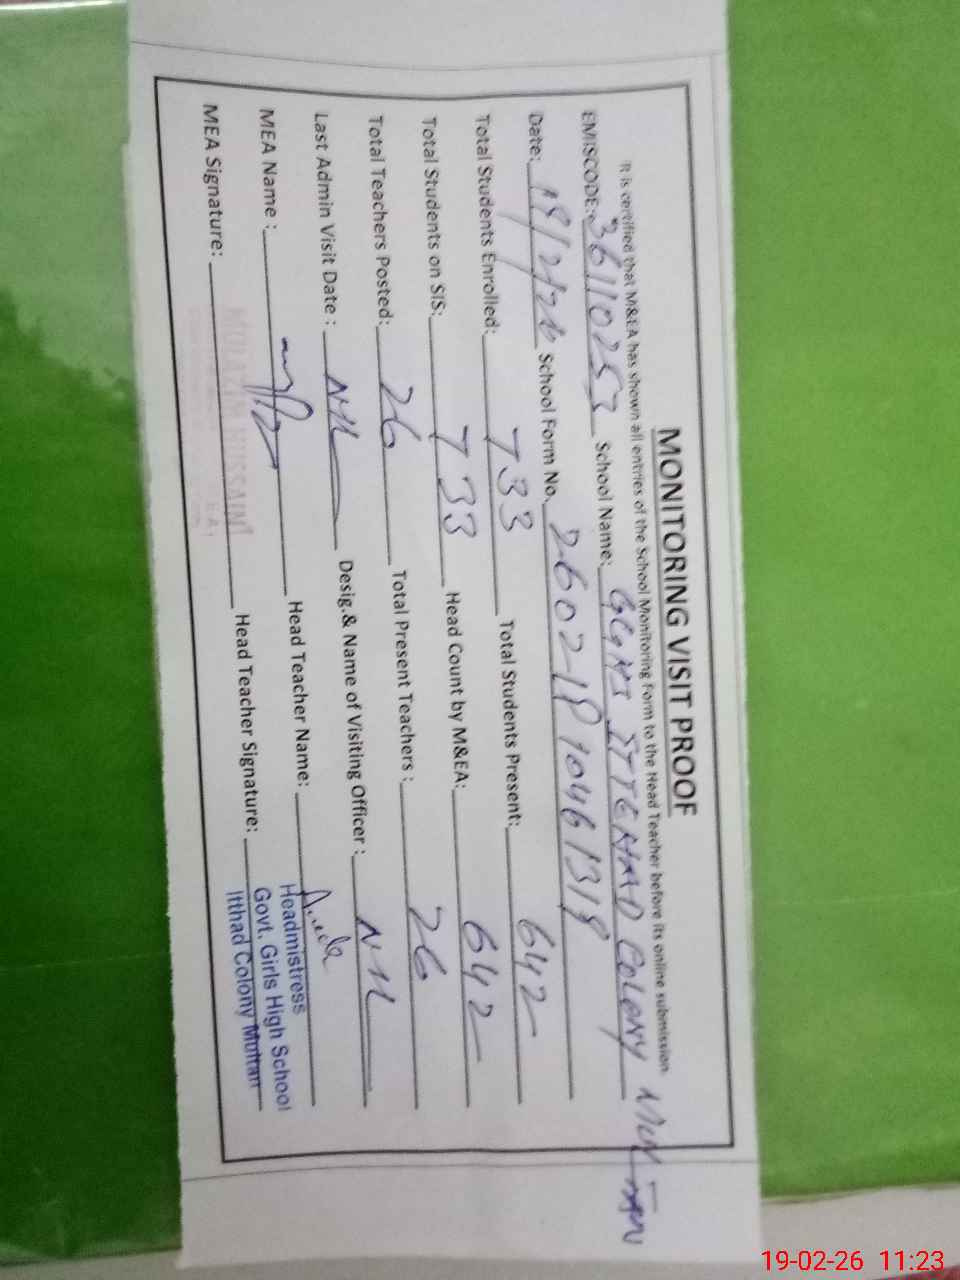 MONITORING VISIT PROOF
It is certified that M&EA has shown all entries of the School Monitoring Form to the Head Teacher before its online submission
EMISCODE: 36110253 School Name: GGHS ITTEHAD COLONY MULTAN
Date: 19/2/26 School Form No. 26021910461319
Total Students Enrolled: 733 Total Students Present: 642
Total Students on SIS: 733 Head Count by M&EA: 642
Total Teachers Posted: 26 Total Present Teachers : 26
Last Admin Visit Date : NIL Desig.& Name of Visiting Officer : NIL
MEA Name : Head Teacher Name:
MEA Signature: Head Teacher Signature:
MULAZIM HUSSAIN
Headmistress
Govt. Girls High School
Itthad Colony Multan
19-02-26 11:23